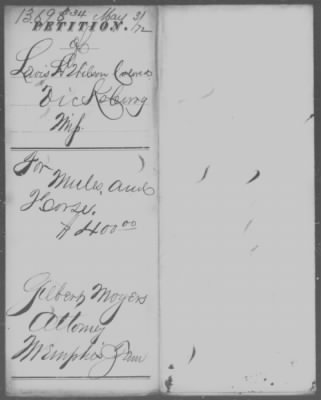 May 31
/72
PETITION.
of
Wilson
Vicksburg
Miss.
For
Mules and
Horse.
$400 00
Gilbert Moyers
Attorney
Memphis Tenn